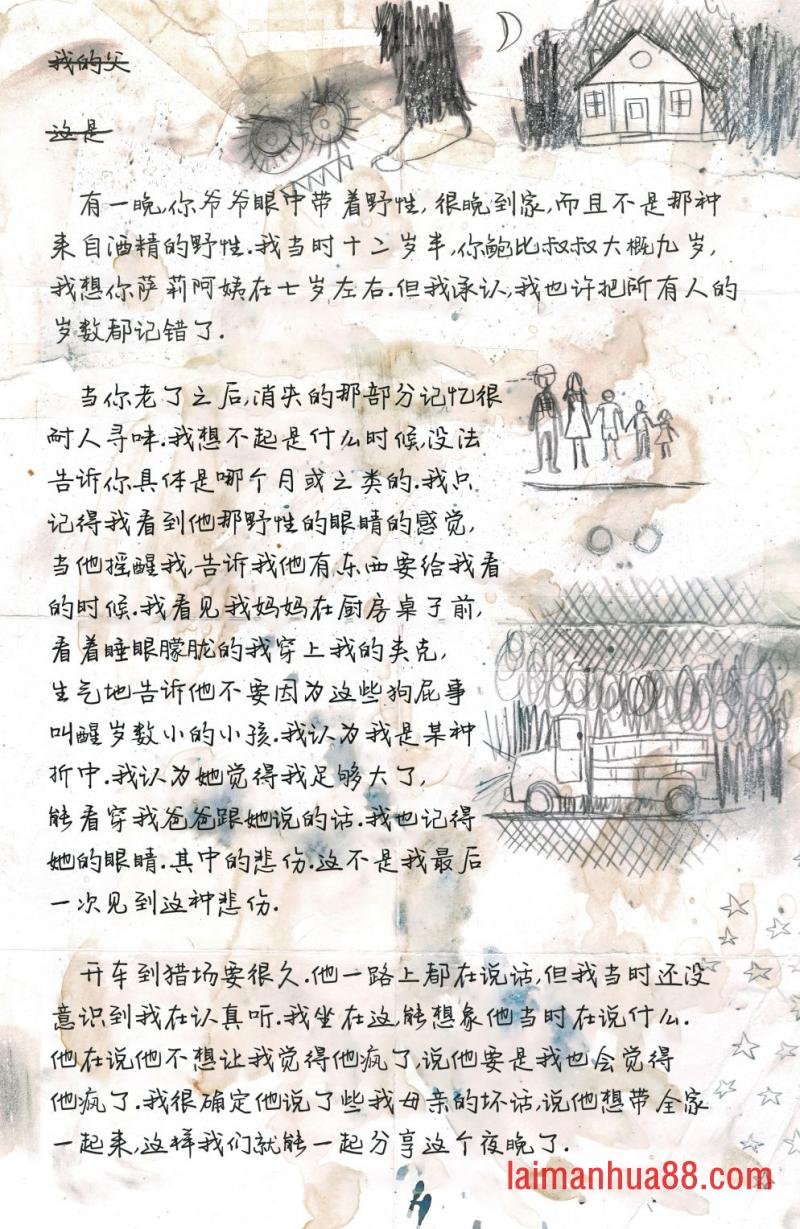 我的父
这是
有一晚,你爷爷眼中带着野性,很晚到家,而且不是那种
来自酒精的野性.我当时十二岁半,你鲍比叔叔大概九岁,
我想你萨莉阿姨在七岁左右.但我承认,我也许把所有人的
岁数都记错了.
当你老了之后,消失的那部分记忆很
耐人寻味.我想不起是什么时候,没法
告诉你具体是哪个月或之类的.我只
记得我看到他那野性的眼睛的感觉,
当他摇醒我,告诉我他有东西要给我看
的时候.我看见我妈妈在厨房桌子前,
看着睡眼朦胧的我穿上我的夹克,
生气地告诉他不要因为这些狗屁事
叫醒岁数小的小孩.我认为我是某种
折中.我认为她觉得我足够大了,
能看穿我爸爸跟她说的话.我也记得
她的眼睛.其中的悲伤.这不是我最后
一次见到这种悲伤.
开车到猎场要很久.他一路上都在说话,但我当时还没
意识到我在认真听.我坐在这,能想象他当时在说什么.
他在说他不想让我觉得他疯了,说他要是我也会觉得
他疯了.我很确定他说了些我母亲的坏话,说他想带全家
一起来,这样我们就能一起分享这个夜晚了.
laimanhua88.com